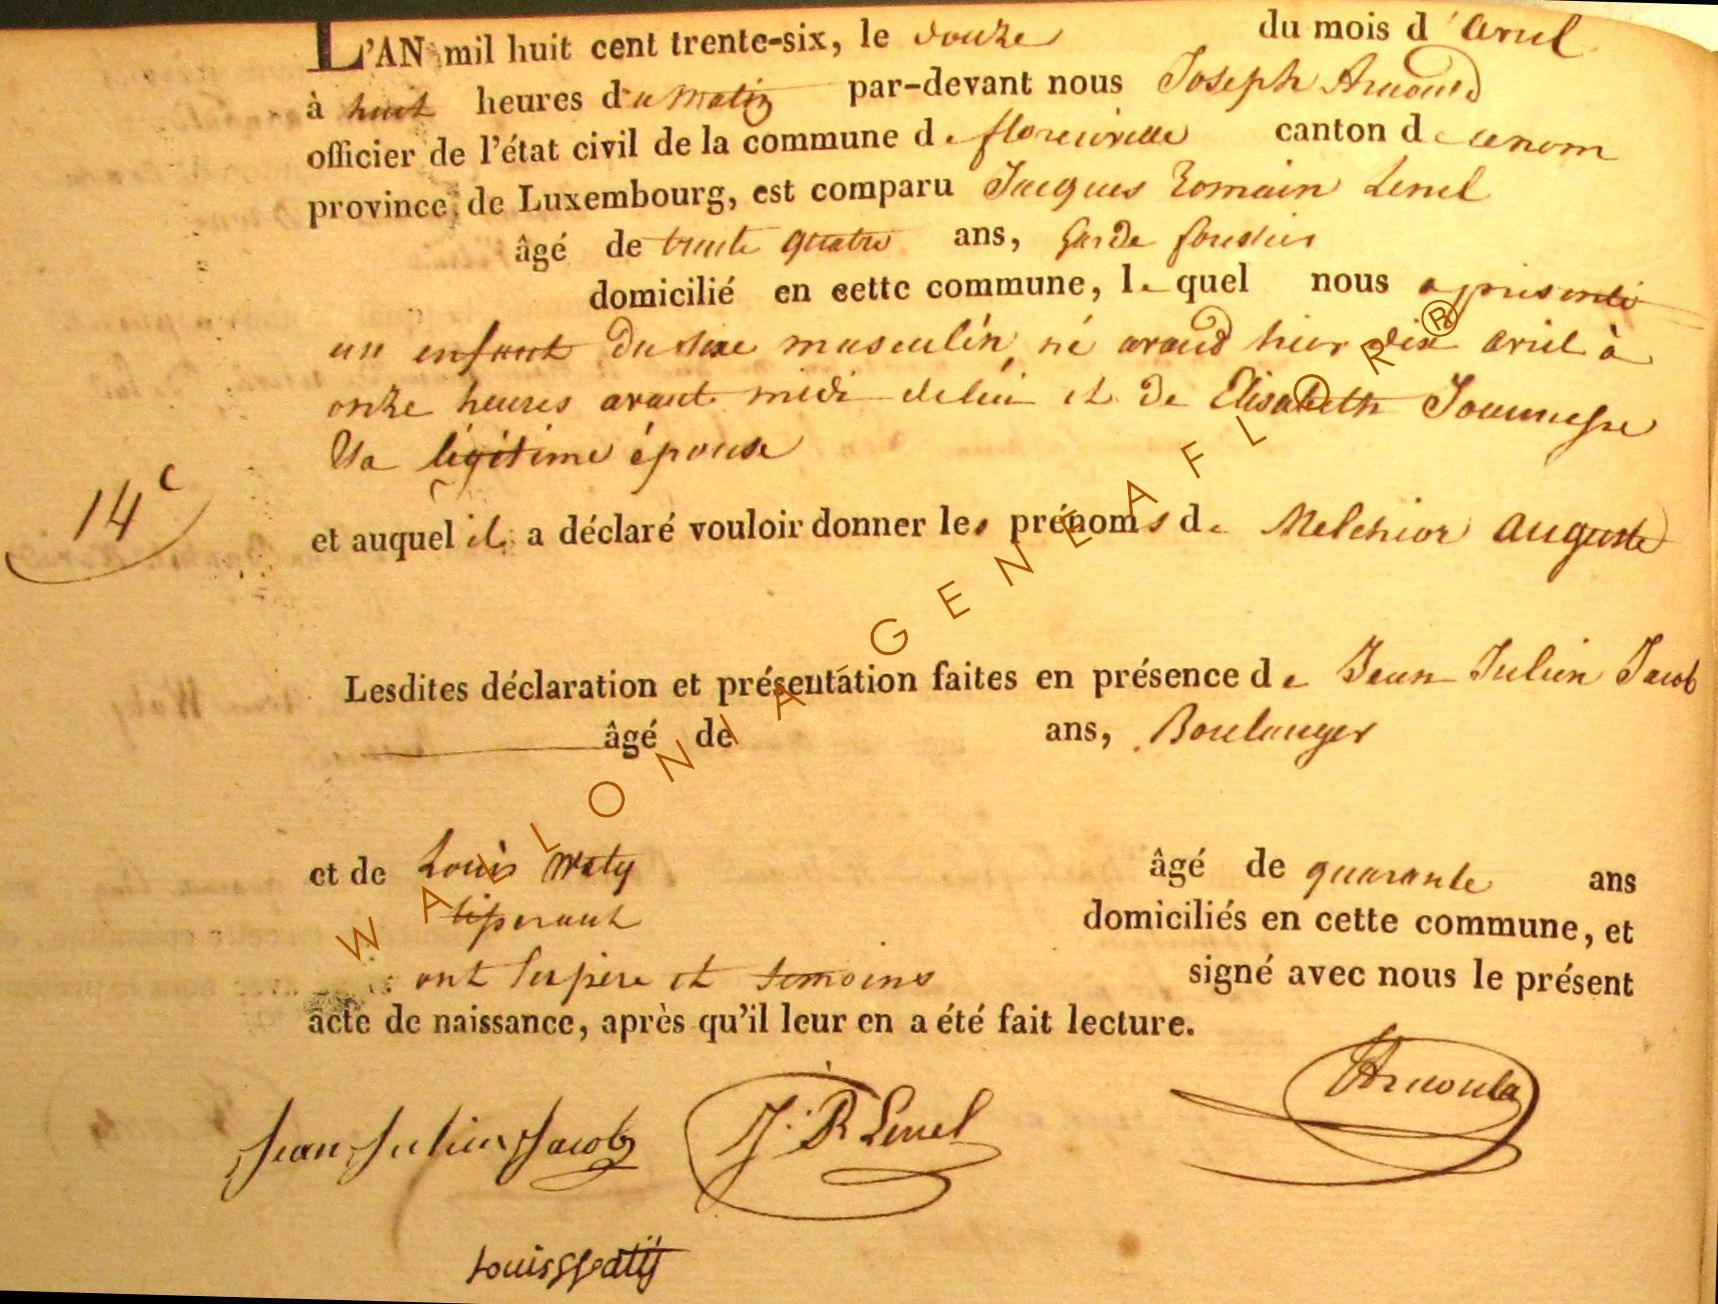 L'AN mil huit cent trente-six, le douze du mois d'avril
à huit heures du matin par-devant nous Joseph Arnould
officier de l'état civil de la commune de florenville canton d
province de Luxembourg, est comparu Jacques Romain Lenel
âgé de trente quatre ans, garde forestier
domicilié en cette commune, le quel nous a présenté
un enfant du sexe masculin, né avant hier dix avril à
onze heures avant midi de lui et de Elisabeth
Sa légitime épouse
14e
et auquel il a déclaré vouloir donner les prénoms de Melchior auguste
Lesdites déclaration et présentation faites en présence de Jean Julien Jacob
âgé de ans, Boulanger
et de Louis Waty âgé de quarante ans
tisserant domiciliés en cette commune, et
ont les père et temoins signé avec nous le présent
acte de naissance, après qu'il leur en a été fait lecture.
Jean Julien Jacob J. R Lenel Arnould
Louis Watÿ
WALLONIA GENEAFLOR®